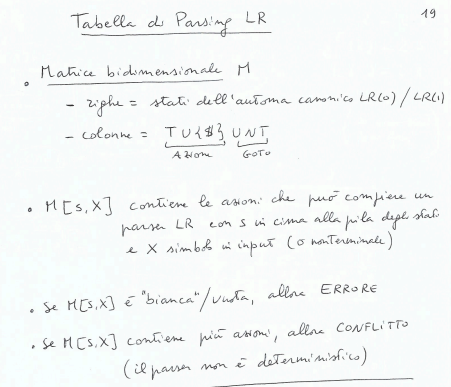 Tabella di Parsing LR 19
• Matrice bidimensionale M
- righe = stati dell'automa canonico LR(0) / LR(1)
- colonne = T ∪ {$} ∪ NT
Azione GOTO
• M[s,X] contiene le azioni che può compiere un
parser LR con s in cima alla pila degli stati
e X simbolo in input (o nonterminale)
• Se M[s,X] è "bianca"/vuota, allora ERRORE
• Se M[s,X] contiene più azioni, allora CONFLITTO
(il parser non è deterministico)